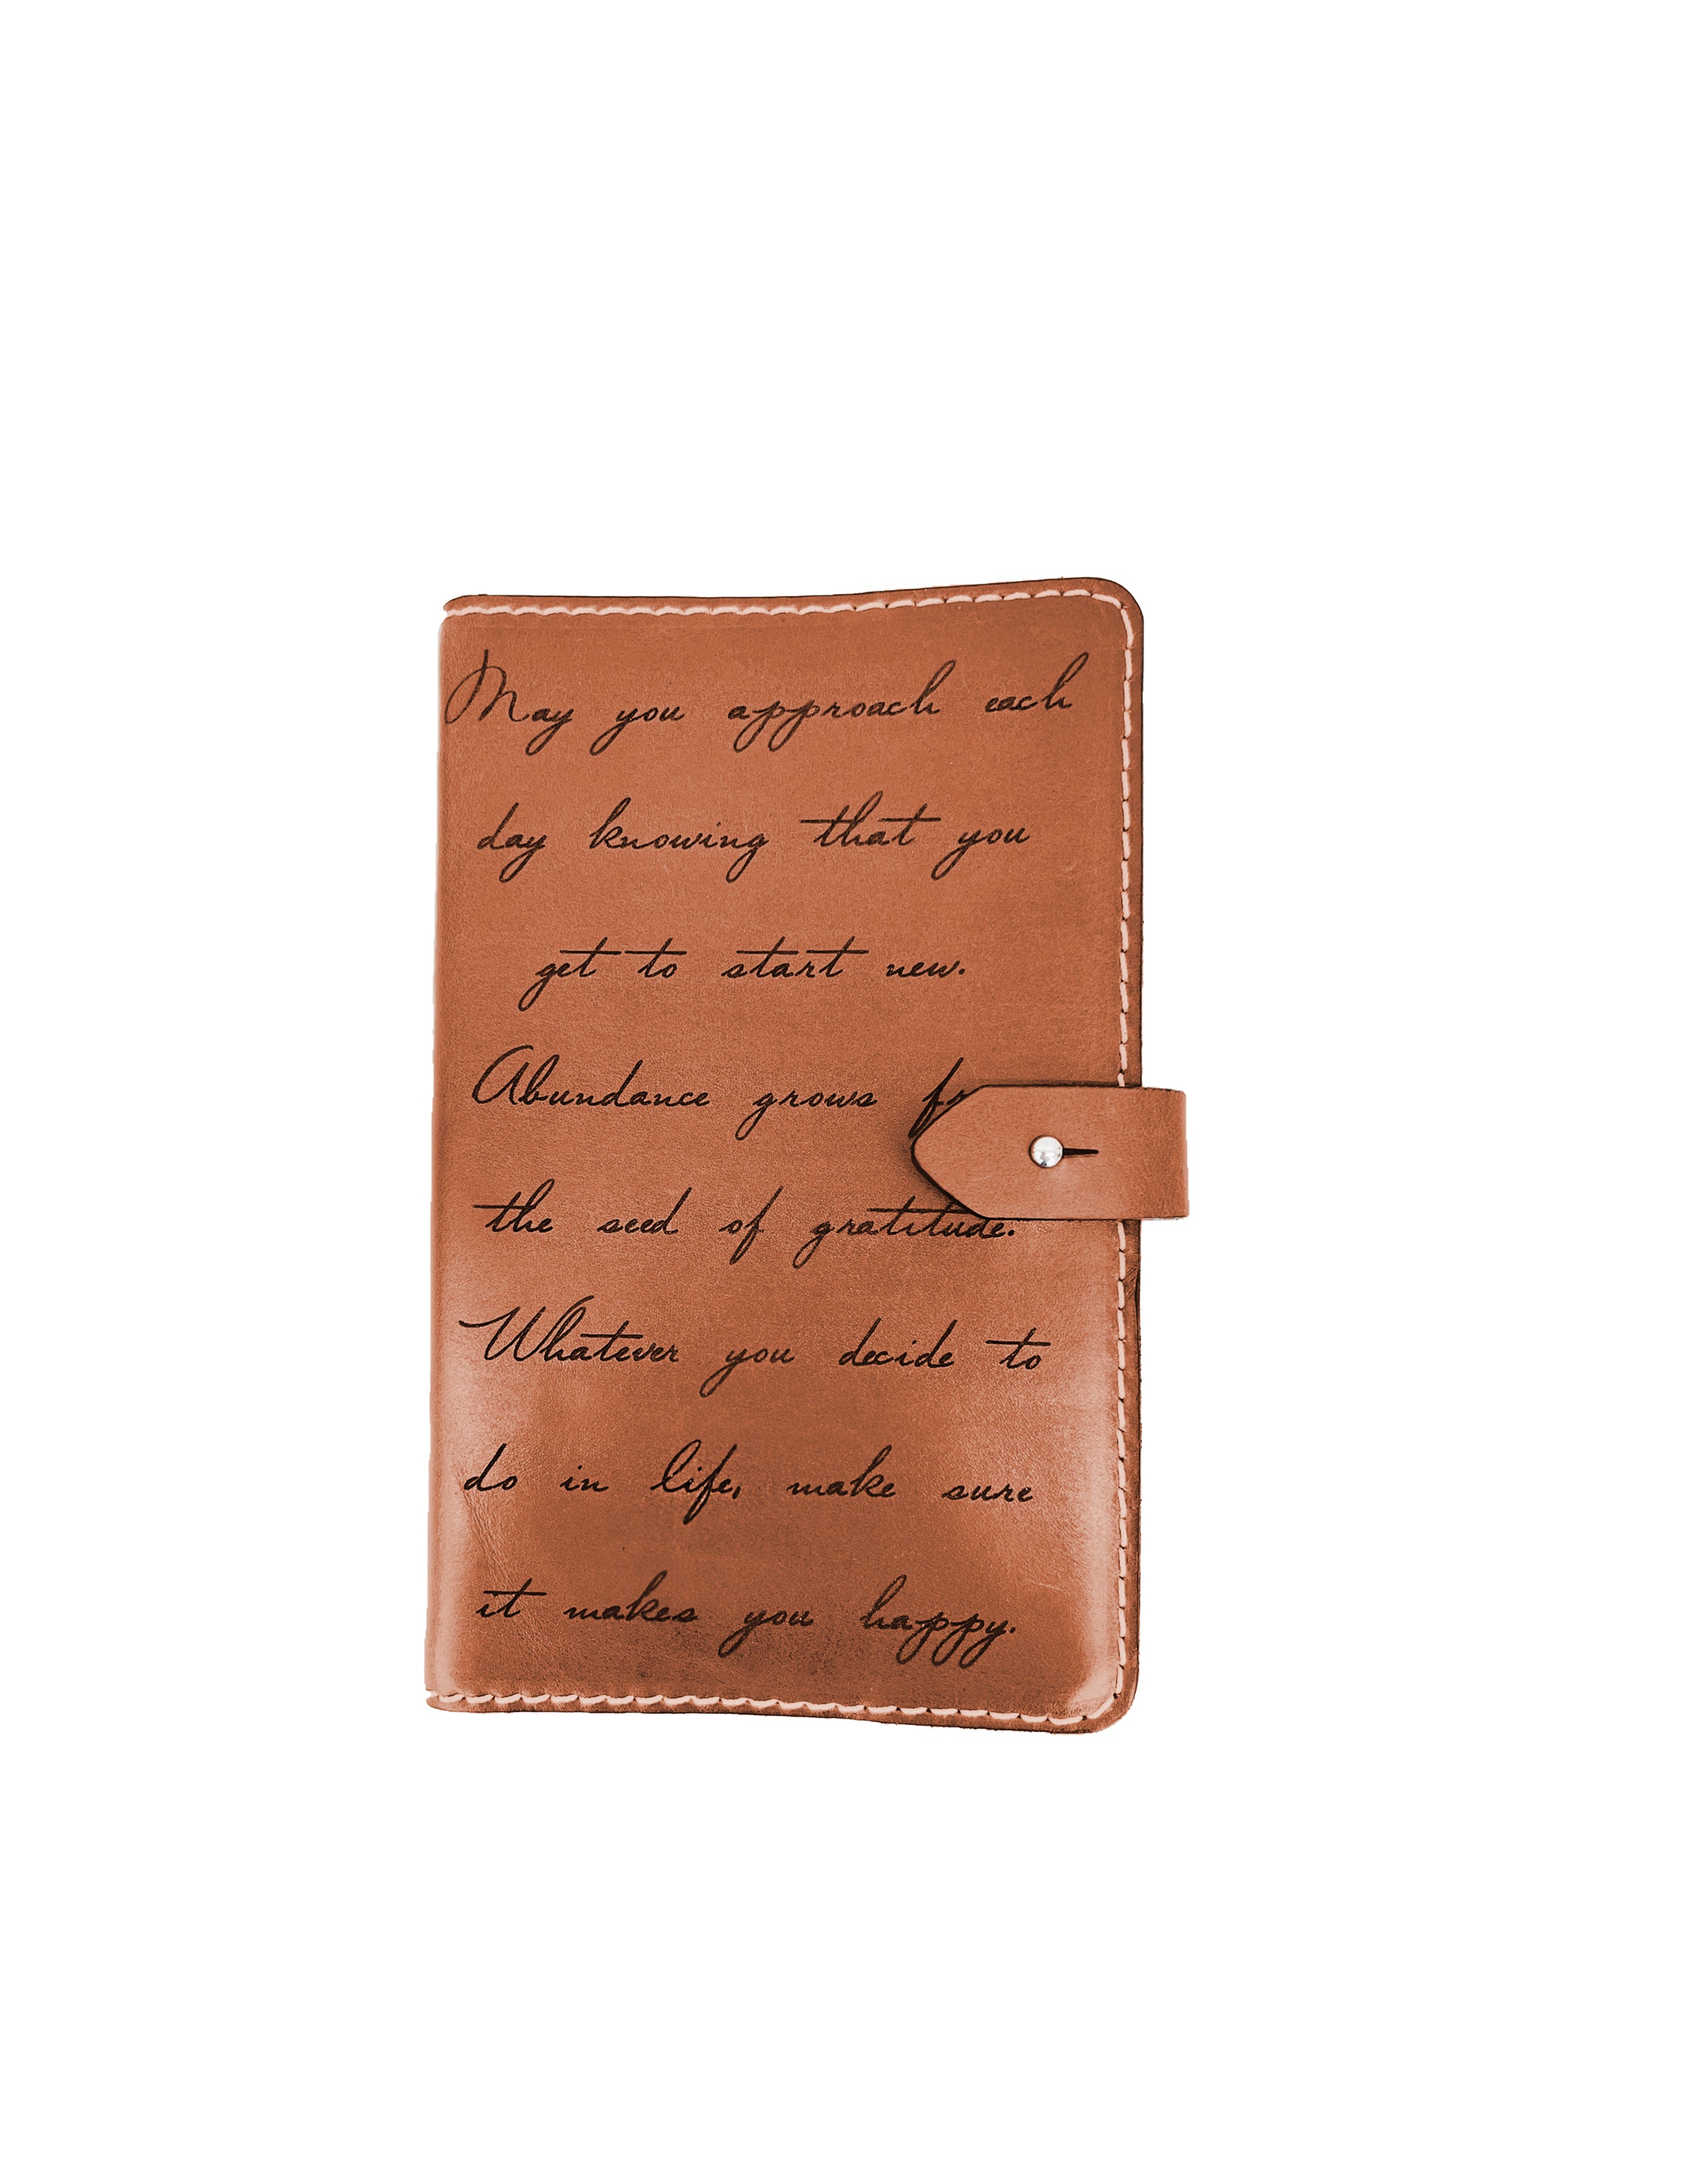 May you approach each
day knowing that you
get to start new.
Abundance grows
the seed of gratitude.
Whatever you decide to
do in life, make sure
it makes you happy.